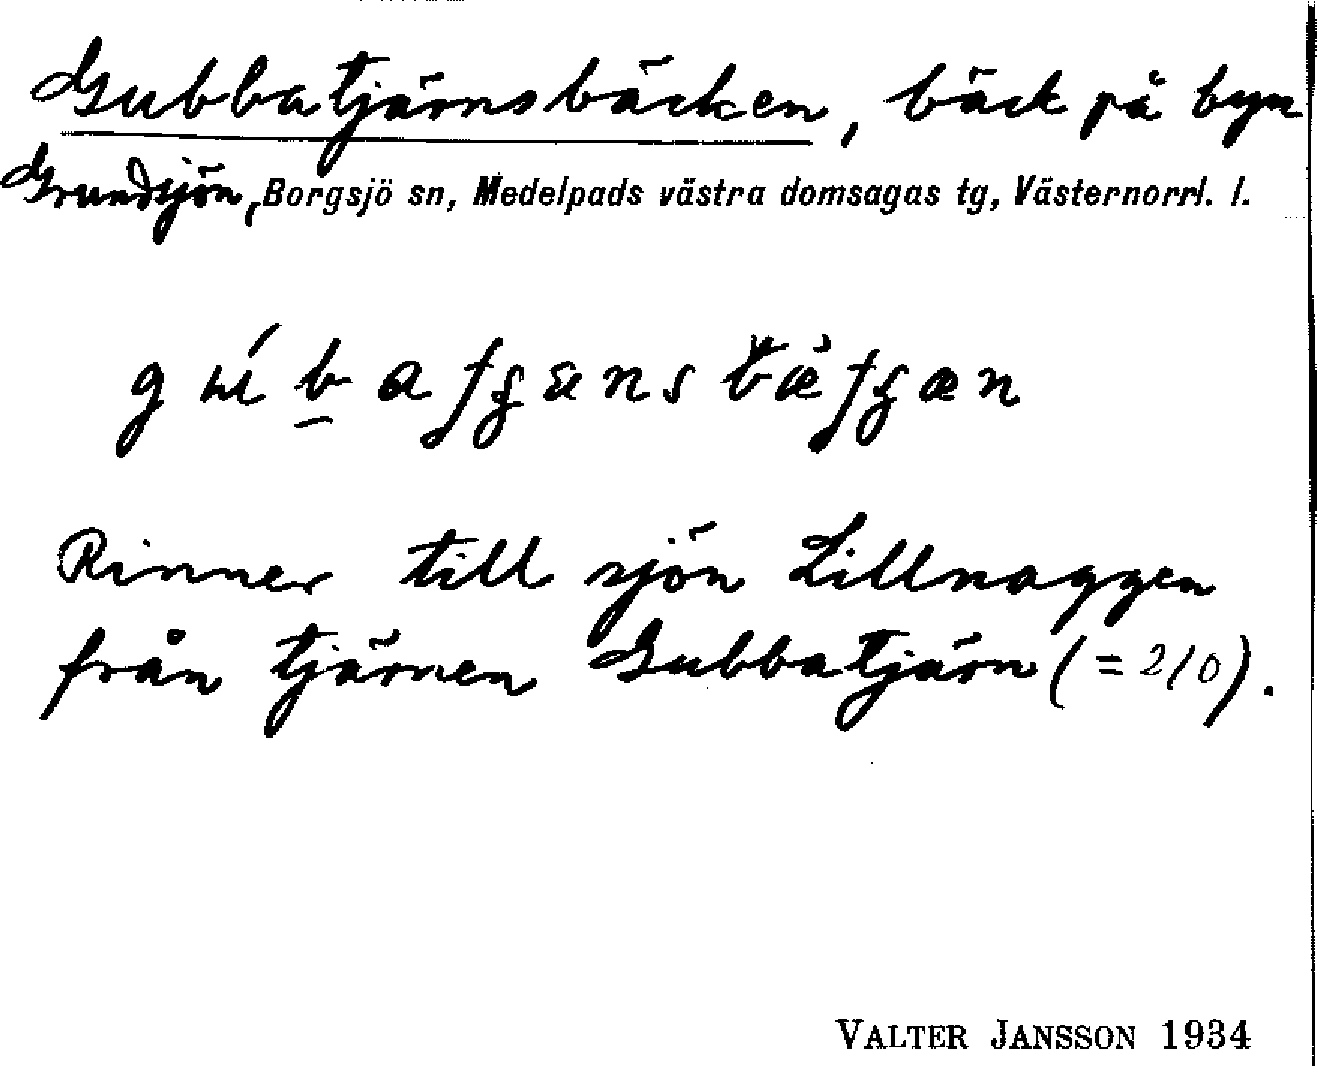 Gubbatjärnsbäcken, bäck på byn
Grundsjön, Borgsjö sn, Medelpads västra domsagas tg, Västernorrl. l.
Rinner till sjön Lillnaggen
från tjärnen Gubbatjärn (= 2/0).
VALTER JANSSON 1934